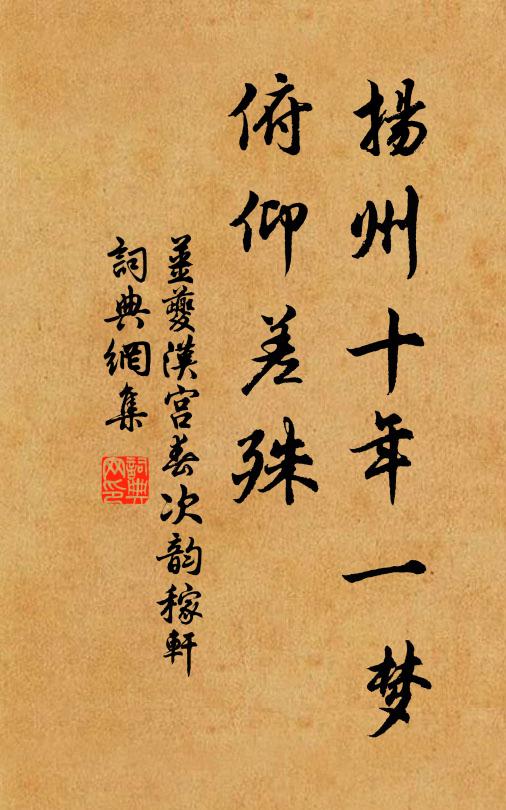 揚州十年一梦
俯仰差殊
姜夔漢宮春次韵稼軒
詞典網集
詞典网印